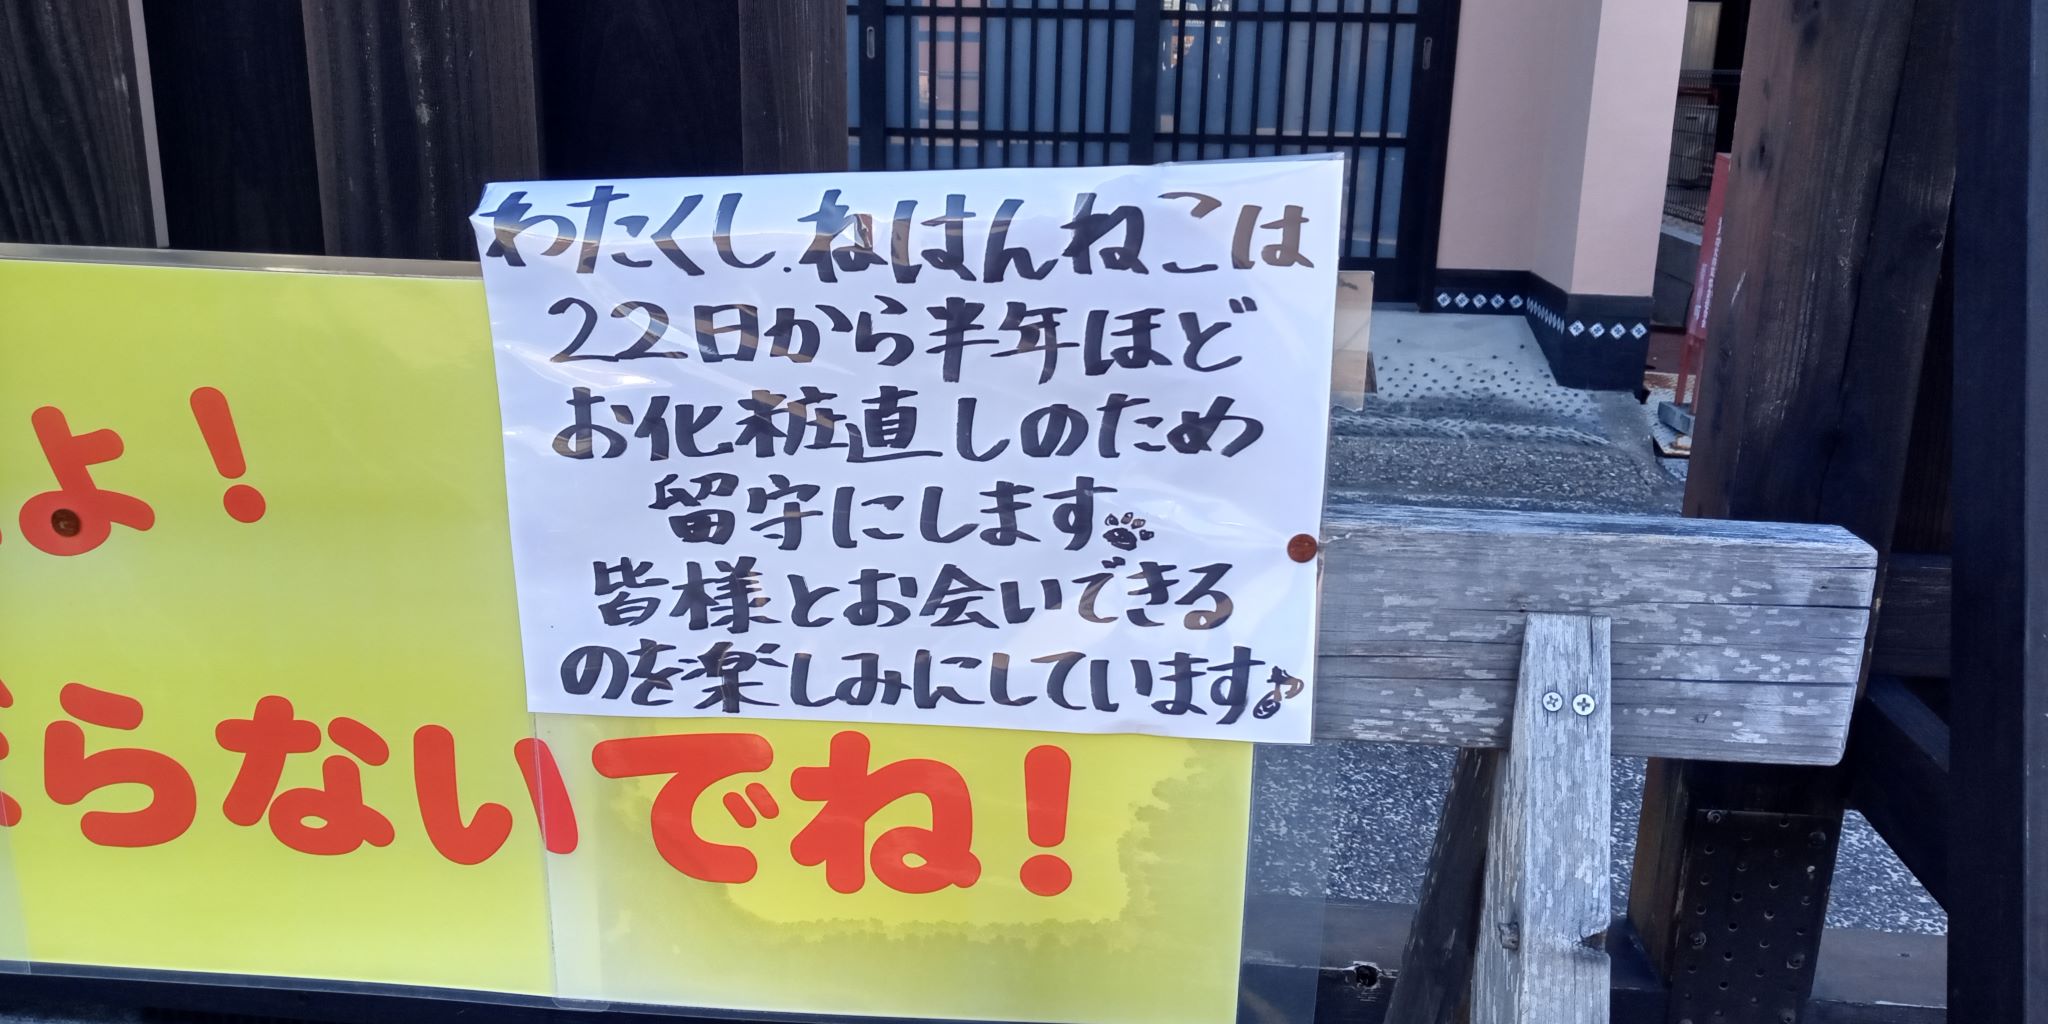 わたくし.ねはんねこは
22日から半年ほど
お化粧直しのため
留守にします。
皆様とお会いできる
のを楽しみにしています♪
よ!
らないでね!